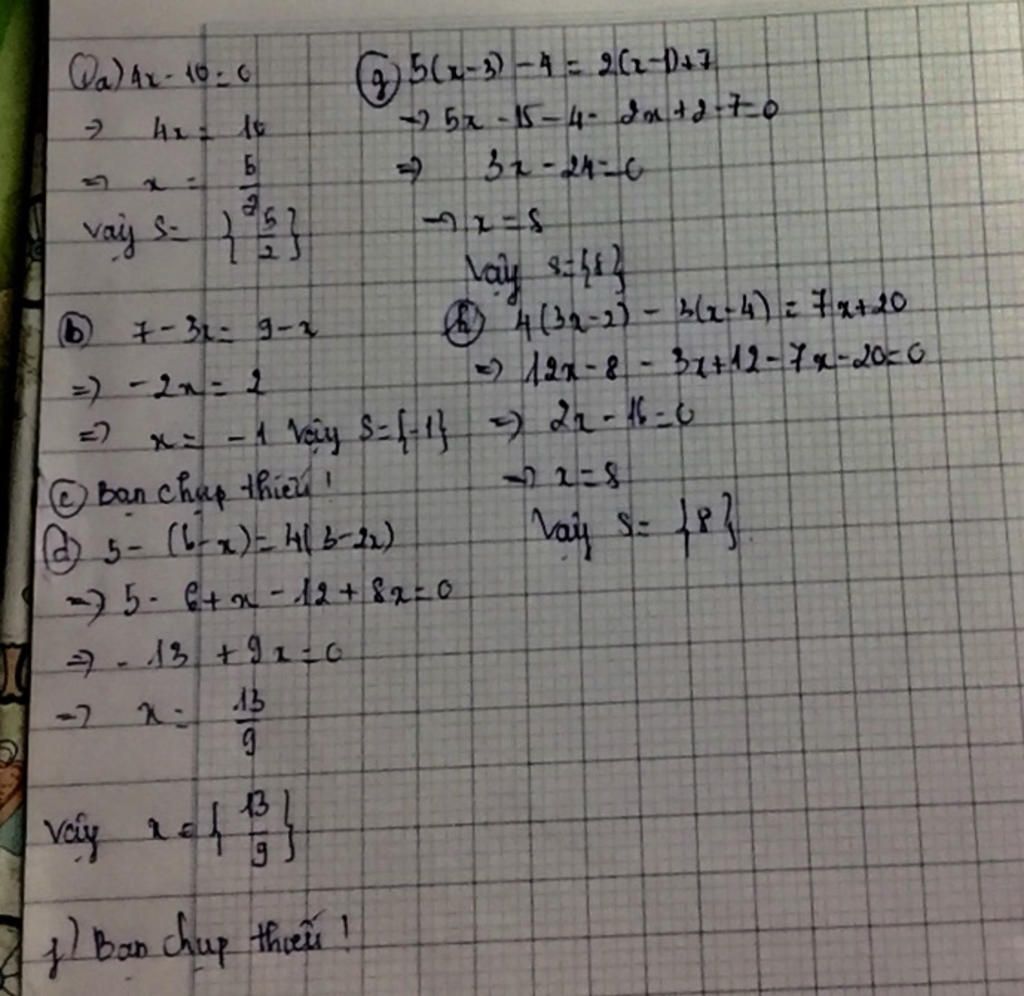 1) a) 4x - 10 = 0
=> 4x = 10
=> x = 5/2
Vậy S = {5/2}
b) 7 - 3x = 9 - x
=> -2x = 2
=> x = -1 Vậy S = {-1}
c) Bạn chụp thiếu!
d) 5 - (6 - x) = 4(3 - 2x)
=> 5 - 6 + x - 12 + 8x = 0
=> -13 + 9x = 0
=> x = 13/9
Vậy x = {13/9}
f) Bạn chụp thiếu!
g) 5(x-3) - 4 = 2(x-1)+7
=> 5x - 15 - 4 - 2x + 2 - 7 = 0
=> 3x - 24 = 0
=> x = 8
Vậy S = {8}
h) 4(3x-2) - 3(x-4) = 7x+20
=> 12x - 8 - 3x + 12 - 7x - 20 = 0
=> 2x - 16 = 0
=> x = 8
Vậy S = {8}